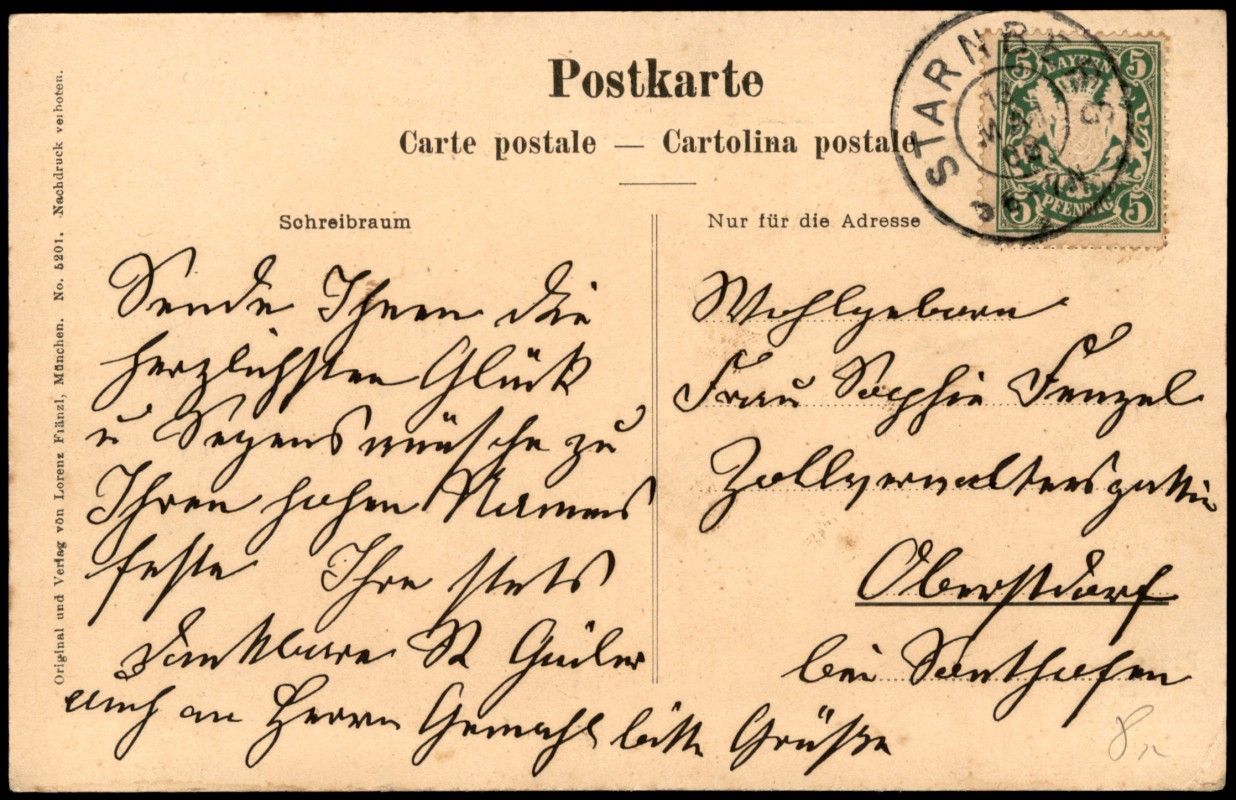 Postkarte
Carte postale — Cartolina postale
Schreibraum
Nur für die Adresse
STARNBERG
13
MAI
BAYERN
5 5
PFENNIG
5 5
Sende Ihnen die
herzlichsten Glück
u Segenswünsche zu
Ihren hohen Namens
feste Ihre stets
dankbare
auch an Herrn Gemahl bitte Grüße
Wohlgeboren
Frau Sophie Fenzel
Zollverwaltersgattin
Oberstdorf
bei Sonthofen
Original und Verlag von Lorenz Fränzl, München. No. 5201. Nachdruck verboten.
8,-